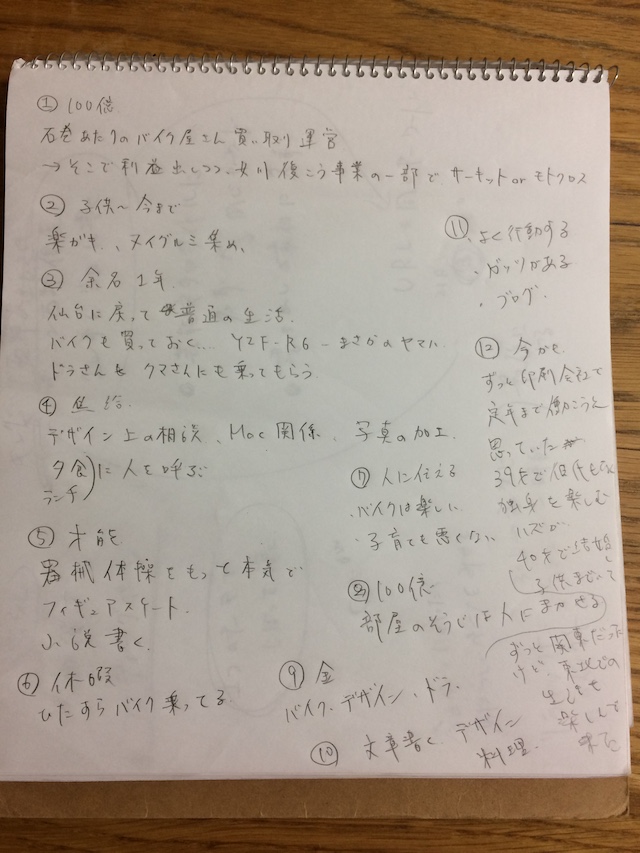 ① 100億
石巻あたりのバイク屋さん買い取り運営
→そこで利益出しつつ、女川 復こう事業の一部で サーキットorモトクロス
② 子供〜今まで
楽がき、ヌイグルミ集め、
③ 余名1年
仙台に戻って普通の生活.
バイクも買っておく… YZF-R6 - まさかのヤマハ
ドラさんも クマさんにも乗ってもらう.
④
デザイン上の相談、Mac関係、写真の加工.
夕食
ランチ
に人を呼ぶ
⑤ 才能
器械体操をもっと本気で
フィギュアスケート.
小説書く.
⑥ 休暇
ひたすらバイク乗ってる
⑦ 人に伝える
・バイクは楽しい
・子育ても悪くない
⑧ 100億
部屋のそうじは人にまかせる
⑨ 金
バイク、デザイン、ドラ.
⑩ 文章書く、デザイン
料理.
⑪ ・よく行動する
・ガッツがある
・ブログ.
⑫ 今かも
ずっと印刷会社で
定年まで働こうと
思っていた
39才で
独身を楽しむ
ハズが
40才で結婚
子供まで
ずっと関東だった
けど、東北での
生活も
楽しんで